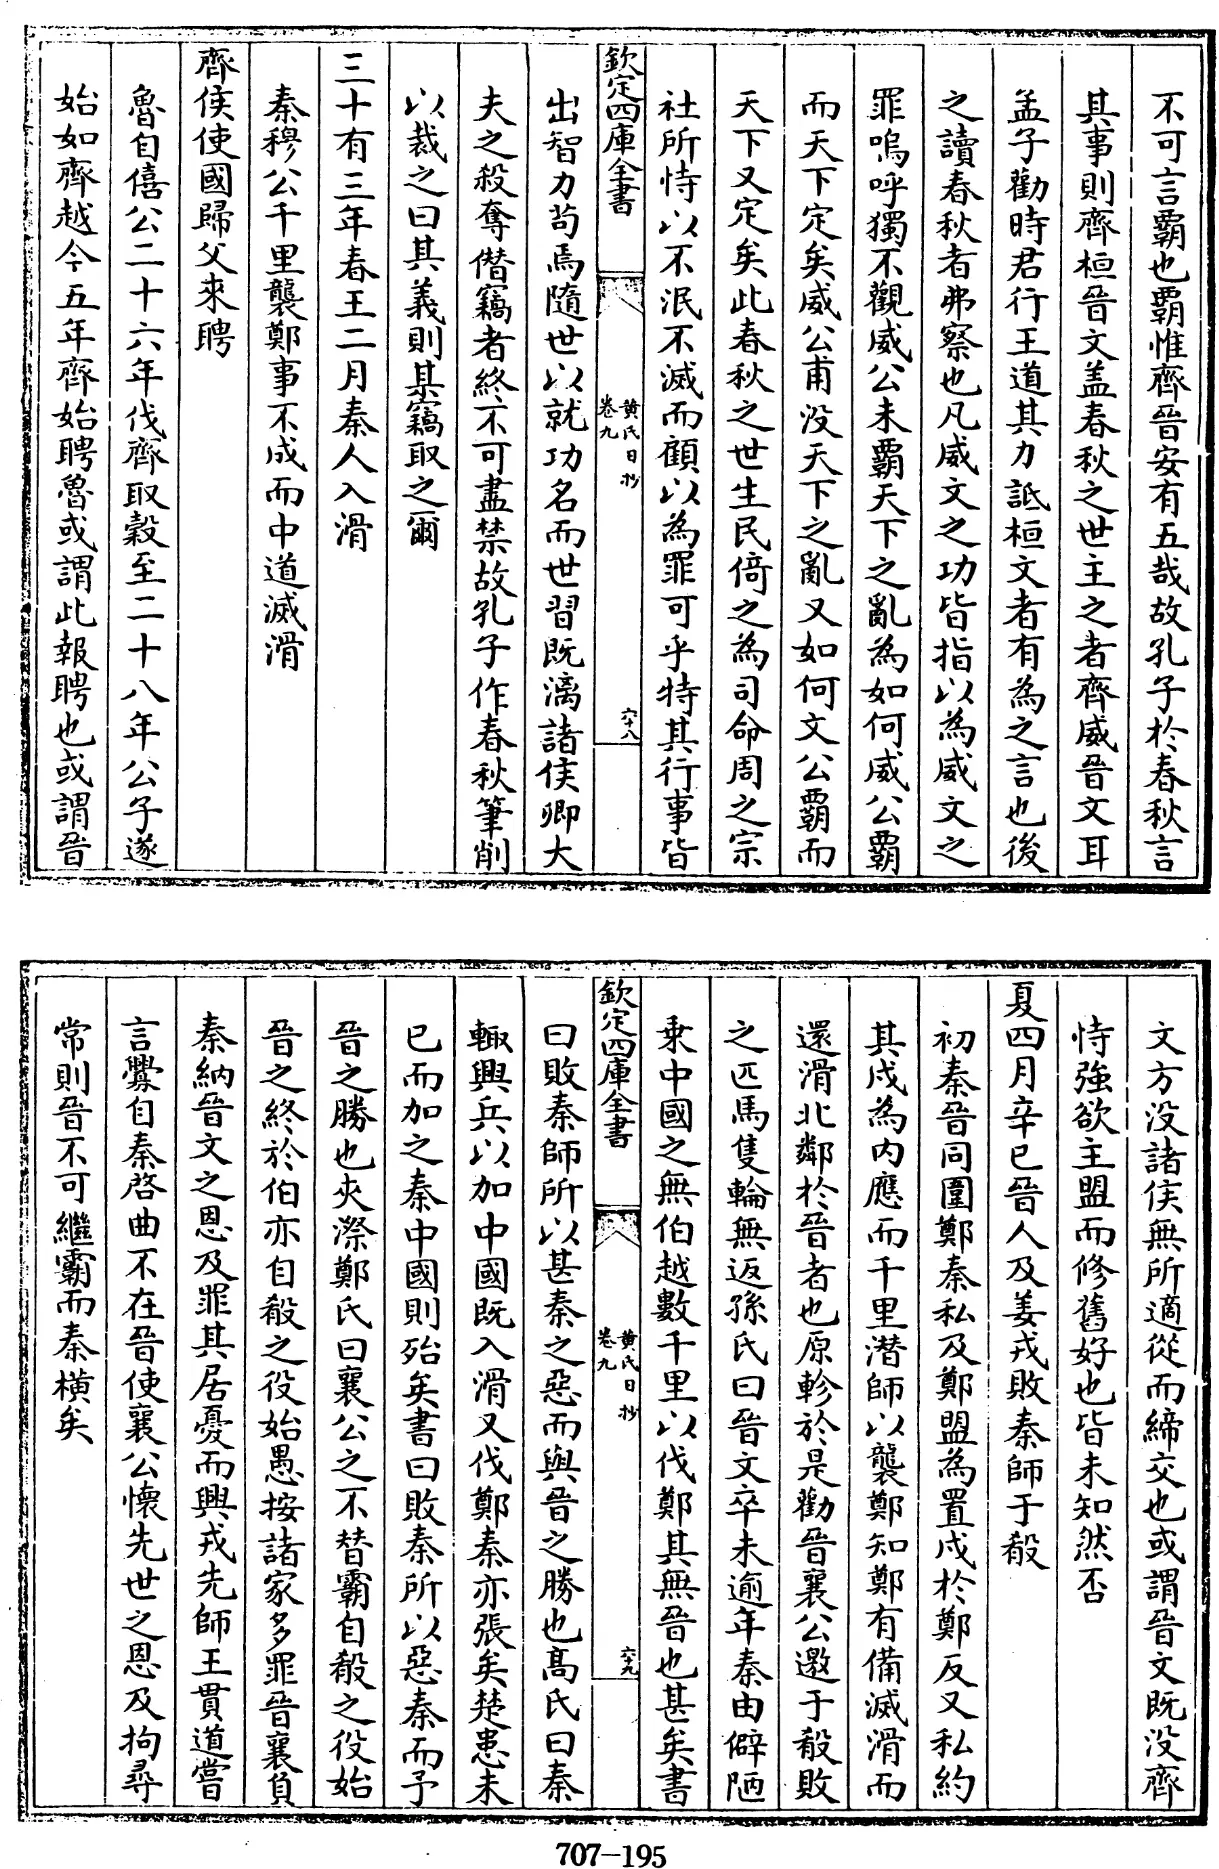 不可言霸也霸惟齊晉安有五哉故孔子於春秋言
其事則齊桓晉文盖春秋之世主之者齊威晉文耳
孟子勸時君行王道其力詆桓文者有為之言也後
之讀春秋者弗察也凡威文之功皆指以為威文之
罪嗚呼獨不觀威公未霸天下之亂為如何威公霸
而天下定矣威公甫没天下之亂又如何文公霸而
天下又定矣此春秋之世生民倚之為司命周之宗
社所恃以不泯不滅而顧以為罪可乎特其行事皆
欽定四庫全書
黄氏日抄
卷九
六十八
出智力苟焉隨世以就功名而世習既漓諸侯卿大
夫之殺奪僣竊者終不可盡禁故孔子作春秋筆削
以裁之曰其義則某竊取之爾
三十有三年春王二月秦人入滑
秦穆公千里襲鄭事不成而中道滅滑
齊侯使國歸父來聘
魯自僖公二十六年伐齊取穀至二十八年公子遂
始如齊越今五年齊始聘魯或謂此報聘也或謂晉
文方没諸侯無所適從而締交也或謂晉文既没齊
恃強欲主盟而修舊好也皆未知然否
夏四月辛巳晉人及姜戎敗秦師于殽
初秦晉同圍鄭秦私及鄭盟為置戍於鄭反又私約
其戍為内應而千里潜師以襲鄭知鄭有備滅滑而
還滑北鄰於晉者也原軫於是勸晉襄公邀于殽敗
之匹馬隻輪無返孫氏曰晉文卒未逾年秦由僻陋
乘中國之無伯越數千里以伐鄭其無晉也甚矣書
欽定四庫全書
黄氏日抄
卷九
六十九
曰敗秦師所以甚秦之惡而與晉之勝也髙氏曰秦
輙興兵以加中國既入滑又伐鄭秦亦張矣楚患未
已而加之秦中國則殆矣書曰敗秦所以惡秦而予
晉之勝也夾漈鄭氏曰襄公之不替霸自殽之役始
晉之終於伯亦自殽之役始愚按諸家多罪晉襄負
秦納晉文之恩及罪其居憂而興戎先師王貫道嘗
言釁自秦啓曲不在晉使襄公懷先世之恩及拘尋
常則晉不可繼霸而秦横矣
707-195